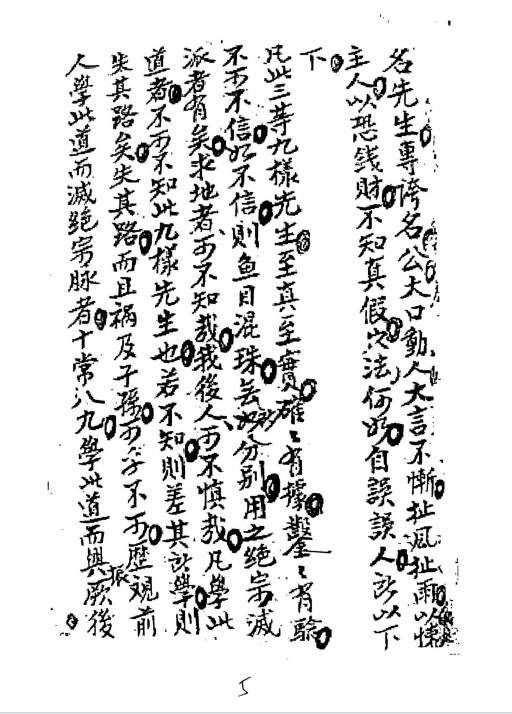 名先生專誇名公大口動人大言不慚扯風扯雨以悚
主人以恐錢財不知真假穴法何如自誤誤人所以下
下
凡此三等九樣先生至真至實確〻有據鑿〻有驗
不可不信如不信則鱼目混珠無以分别用之绝宗滅
派者有矣求地者可不知哉我後人可不慎哉凡學此
道者不可不知此九樣先生也若不知則差其所學則
失其路矣失其路而且禍及子孫可乎不可歷观前
人學此道而滅绝宗脉者十常八九學此道而興振厥後
5